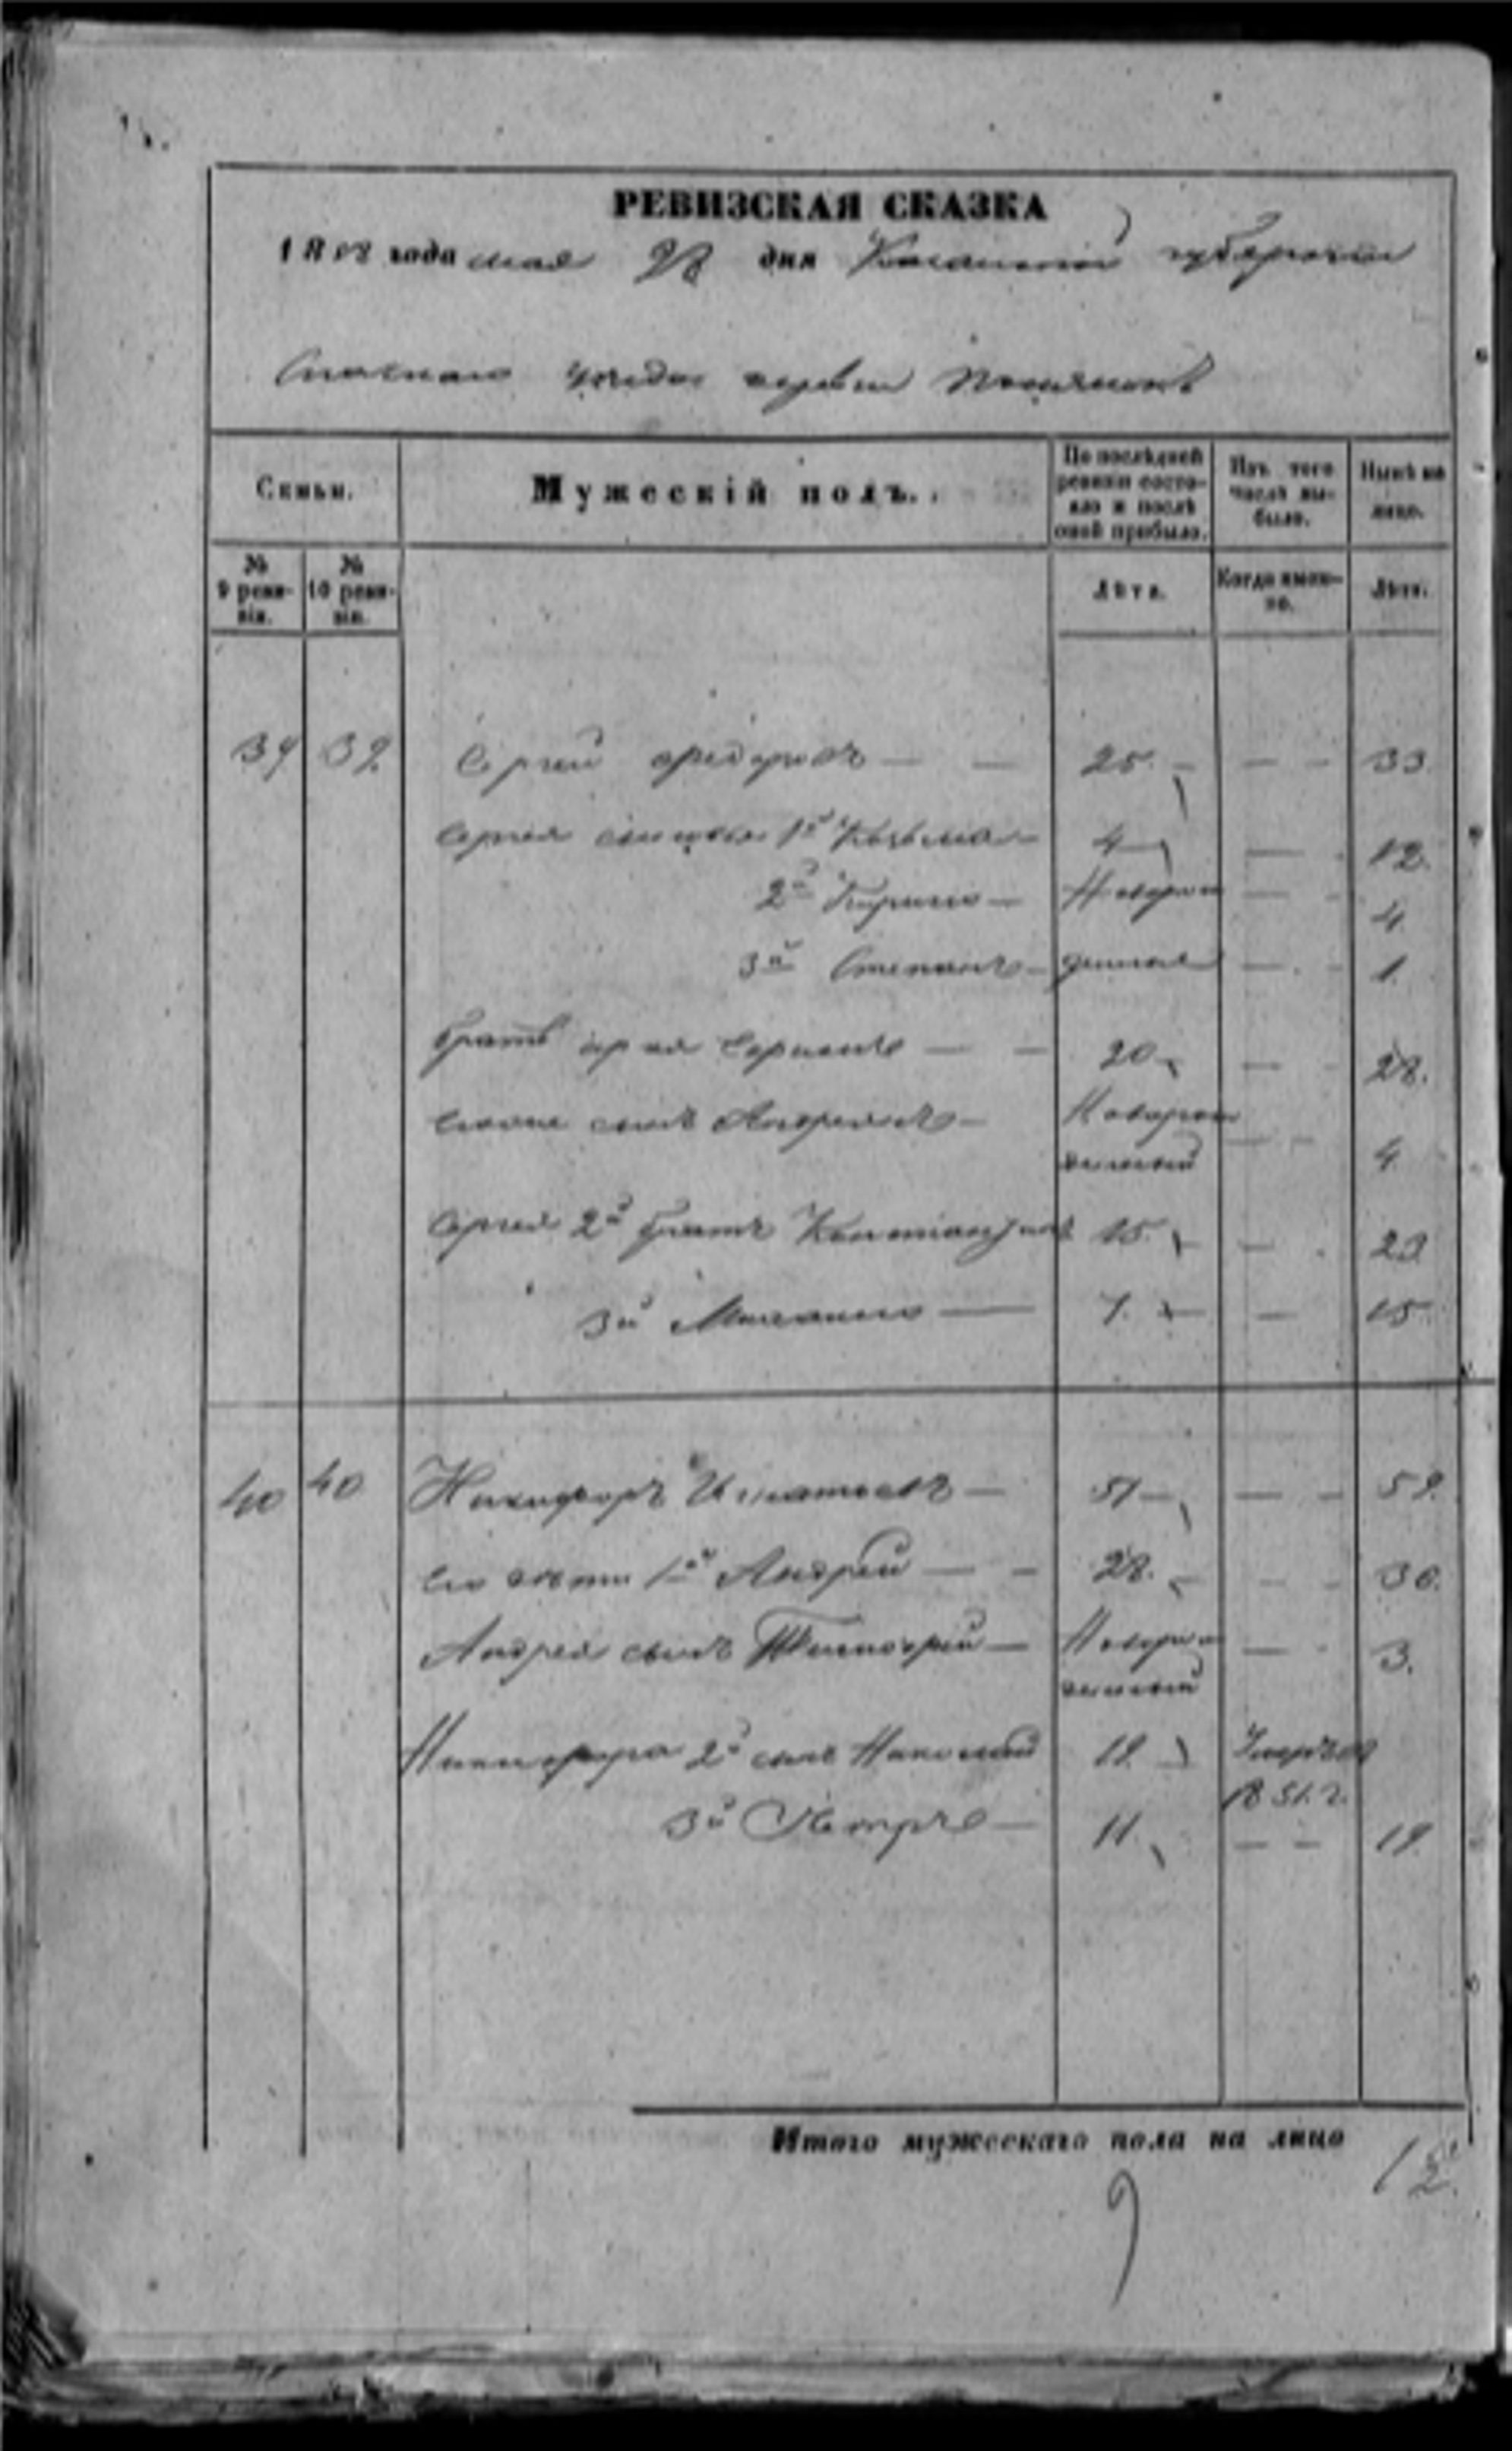 РЕВИЗСКАЯ СКАЗКА
1858 года мая 28 дня Казанской губернии
Спаскаго уезда
Семьи. Мужескій полъ. По последней ревизіи состояло и после оной прибыло. Изъ того числа выбыло. Ныне на лицо.
№ 9 ревизіи. № 10 ревизіи. Лета. Когда именно. Лета.
39 39 Сергей — — 25. — — 33
Сергея сыновья 1й Козьма — 4 — 12.
2й Кирило — Новорож — 4
3й Степанъ — денные — 1
братъ Сергея — — 20 — 28.
сынъ Андреянъ — Новорож
денный — 4
Сергея 2й братъ Константинъ 15. — 23
3й Михайло — 7. — 15
40 40 Никифоръ Игнатьевъ — 51 — — — 59.
Его дети 1й Андрей — — 28. — — 36.
Андрея сынъ Тимофей — Новорож — 3.
денный
Никифора 2й сынъ Николай 19. Умеръ въ
1851 г.
3й Петръ — 11. — — 19.
Итого мужескаго пола на лицо 12.
9